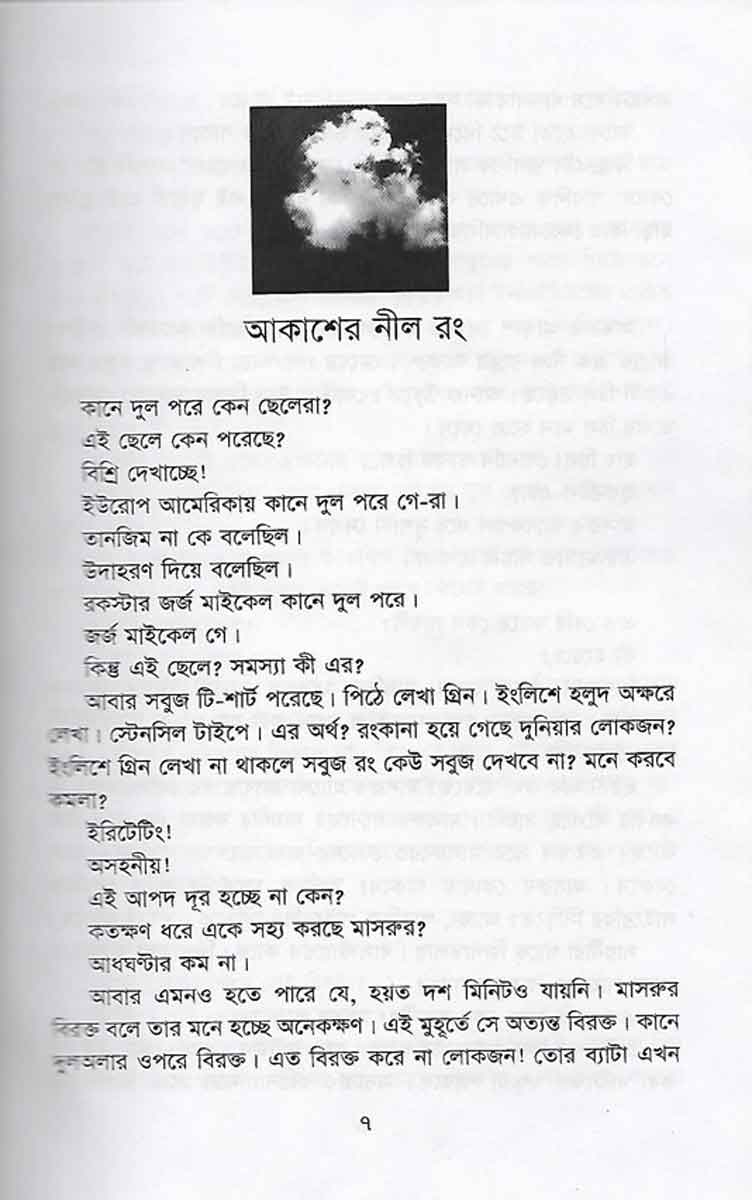 আকাশের নীল রং
কানে দুল পরে কেন ছেলেরা?
এই ছেলে কেন পরেছে?
বিশ্রি দেখাচ্ছে!
ইউরোপ আমেরিকায় কানে দুল পরে গে-রা।
তানজিম না কে বলেছিল।
উদাহরণ দিয়ে বলেছিল।
রকস্টার জর্জ মাইকেল কানে দুল পরে।
জর্জ মাইকেল গে।
কিন্তু এই ছেলে? সমস্যা কী এর?
আবার সবুজ টি-শার্ট পরেছে। পিঠে লেখা গ্রিন। ইংলিশে হলুদ অক্ষরে
লেখা। স্টেনসিল টাইপে। এর অর্থ? রংকানা হয়ে গেছে দুনিয়ার লোকজন?
ইংলিশে গ্রিন লেখা না থাকলে সবুজ রং কেউ সবুজ দেখবে না? মনে করবে
কমলা?
ইরিটেটিং!
অসহনীয়!
এই আপদ দূর হচ্ছে না কেন?
কতক্ষণ ধরে একে সহ্য করছে মাসরুর?
আধঘণ্টার কম না।
আবার এমনও হতে পারে যে, হয়ত দশ মিনিটও যায়নি। মাসরুর
বিরক্ত বলে তার মনে হচ্ছে অনেকক্ষণ। এই মুহূর্তে সে অত্যন্ত বিরক্ত। কানে
দুলঅলার ওপরে বিরক্ত। এত বিরক্ত করে না লোকজন! তোর ব্যাটা এখন
৭